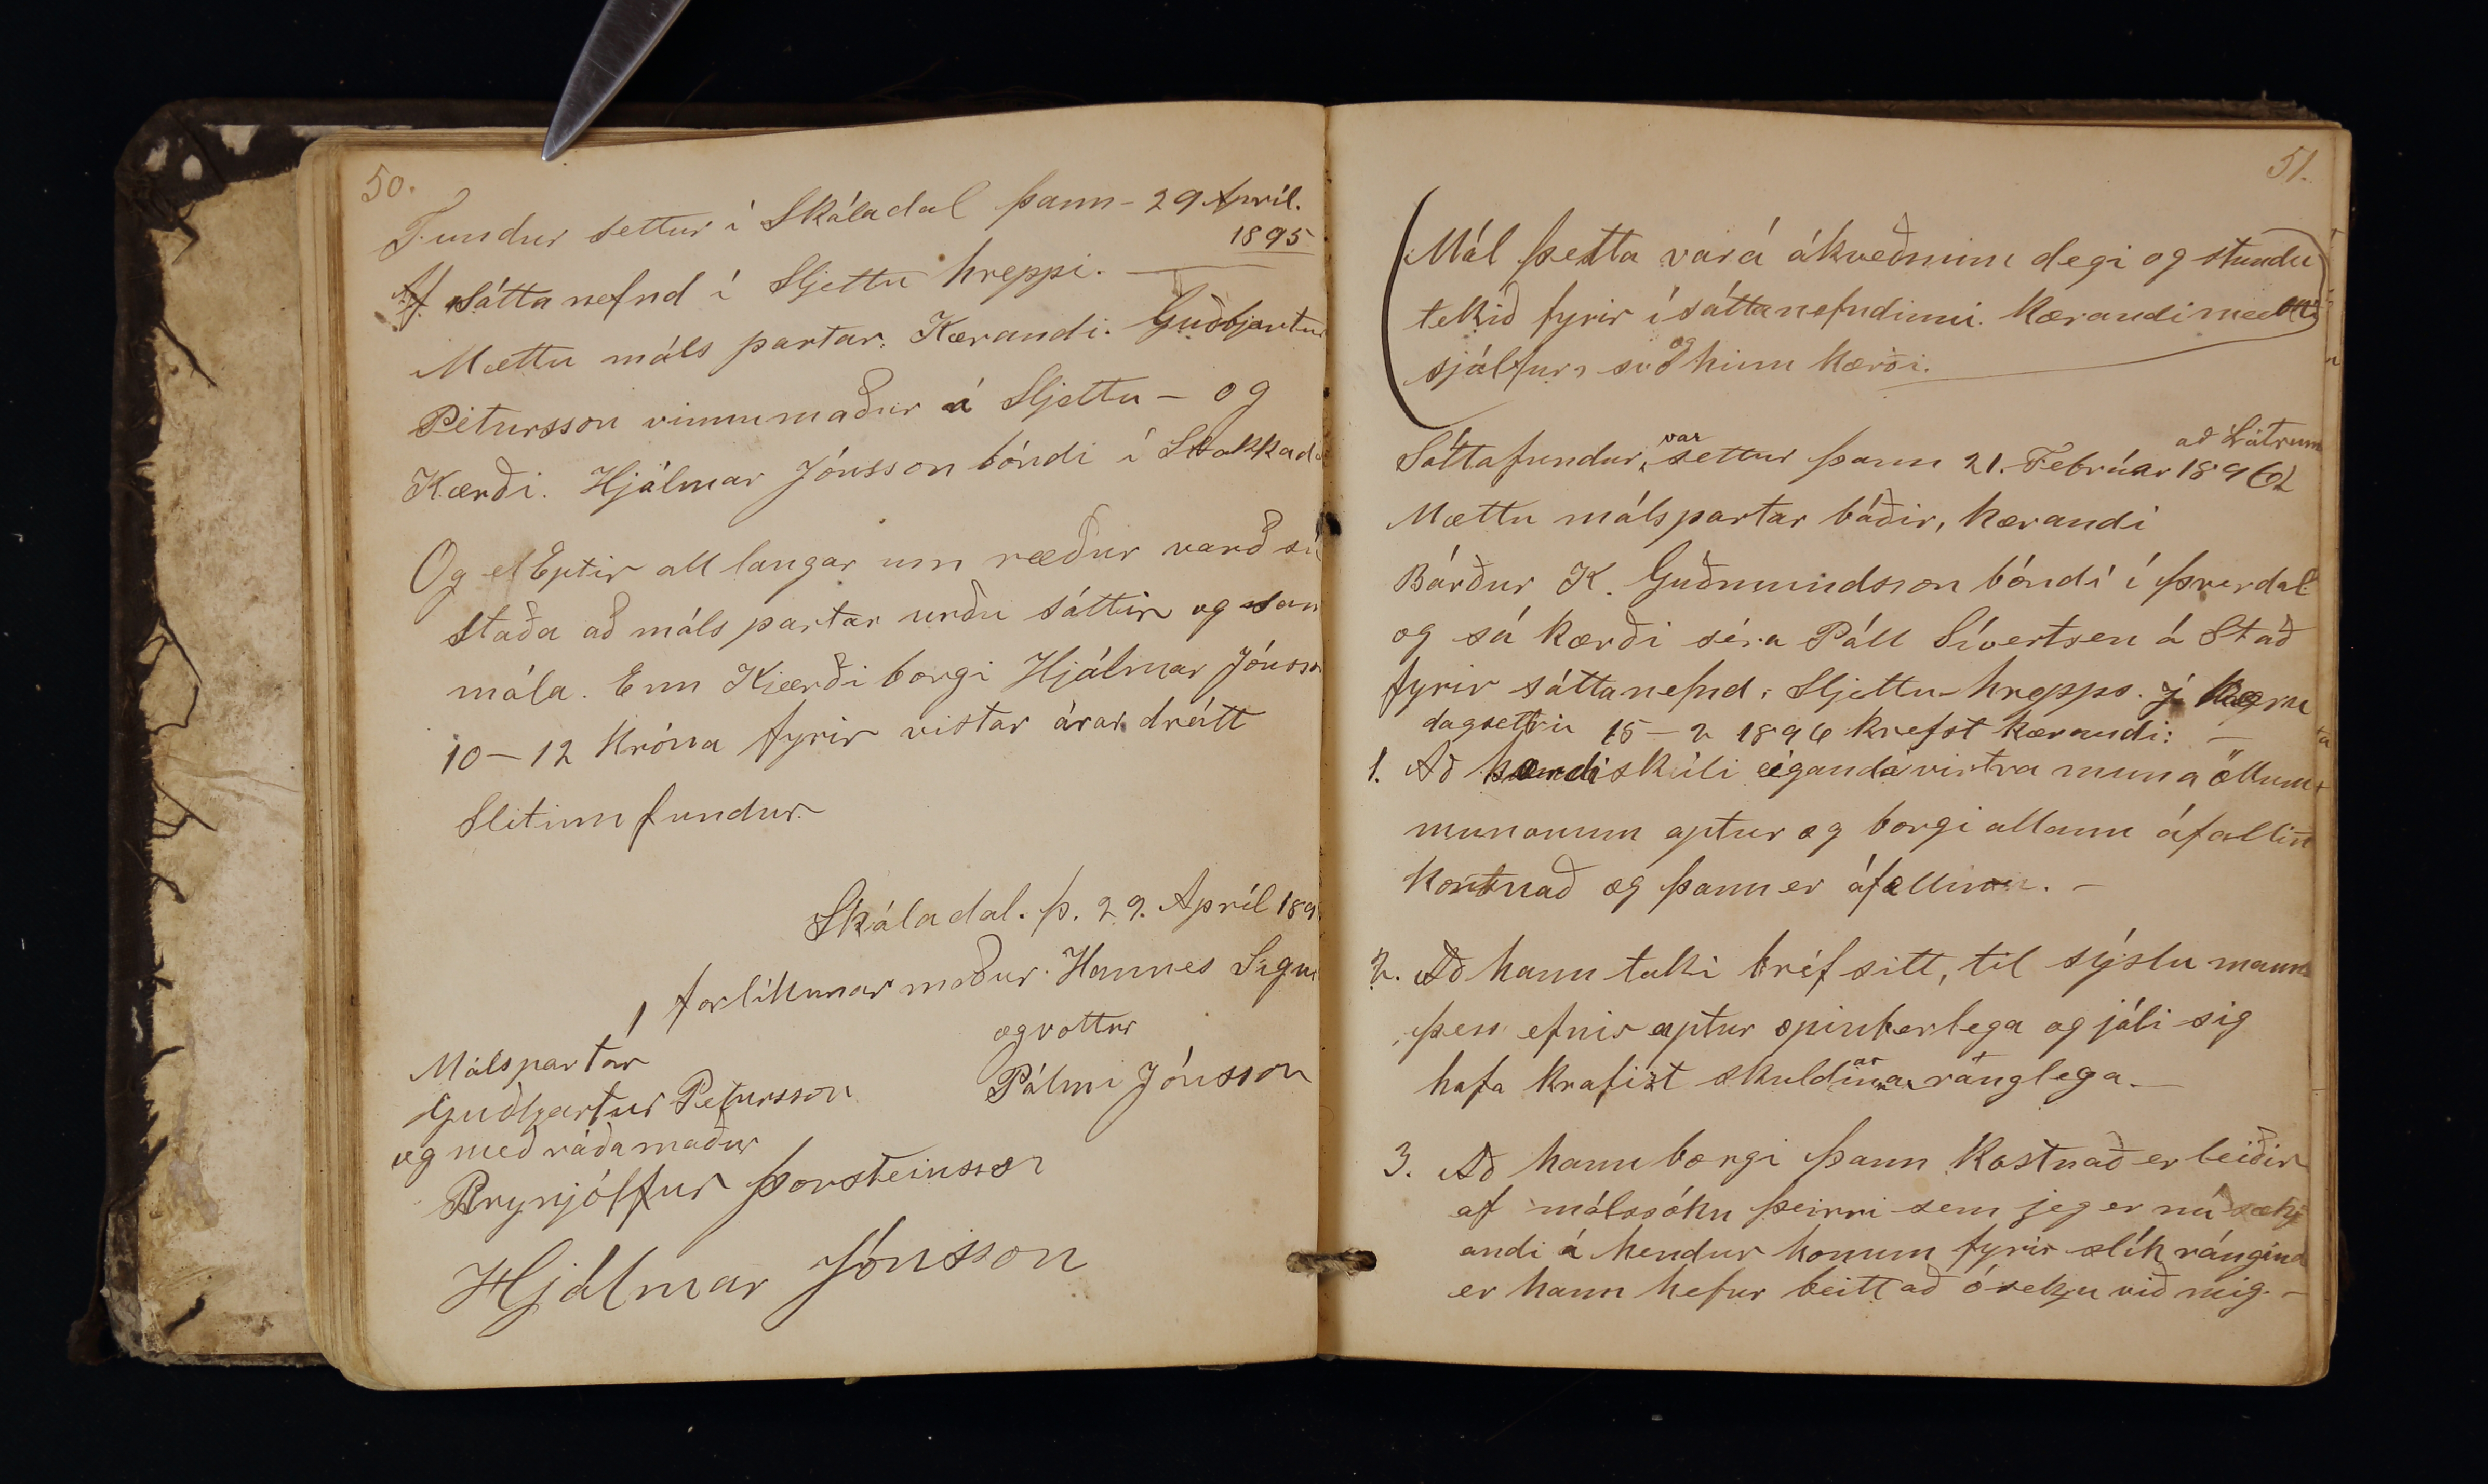 50.
Fundur settur í Skáladal þann - 29 Apríl.
1895
Af sáttanefnd í Sljettu hreppi. —
Mættu máls partar. Kærandi. Guðbjartur
Pétursson vinnumaður á Sljettu - og
Kærði. Hjálmar Jónsson bóndi í Stakkad
Og Eptir all langar um ræður varð sú
staða að máls partar urðu sáttir og sam
mála. Enn Kjærði borgi Hjálmar Jónss
10-12 Króna fyrir vistar árar drátt
Slitinn fundur.
Skáladal. þ. 29. Apríl 189
forlíkunar maður. Hannes Sigu
og vottur
Málspartar
Pálmi Jónsson
Guðbjartur Petursson
og með ráðamaður
Brynjólfur Þorsteinsson
Hjálmar Jónsson
51.
Mál þetta var á ákveðnum degi og stundu
tekið fyrir í sáttanefndinni. Kærandi mætti
sjálfur, svo og hinn kærði.
að Látrum
Sáttafundur, var settur þann 21. Febrúar 1896
Mættu málspartar báðir, kærandi
Bárður K. Guðmundsson bóndi í Þverdal
og sá kærði séra Páll Sívertsen á Stað
fyrir sáttanefnd, Sljettu-hrepps. Í kæru
dagsettri 15-2 1896 krefst kærandi: —
1. Að kærdi skili eiganda vistra muna öllum
mononum aptur og borgi allann áfallin
kostnað og þann er áfellur. -
2. Að hann taki bréf sitt, til sýslu manns
þess efnis aptur opinberlega og játi sig
hafa krafist skuldarinnar ránglega. —
3. Að hann borgi þann kostnað er leiðir
af málssókn þeirri sem jeg er nú sækj
andi á hendur honum fyrir slík rángind
er hann hefur beitt að ósekju við mig. -